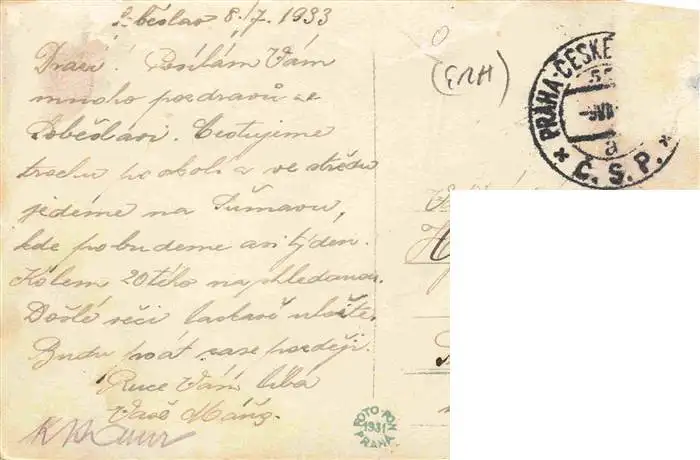 Soběslav 8./7. 1933
Drazí! Posílám Vám
mnoho pozdravů ze
Soběslavi. Cestujeme
trochu po okolí a ve středu
jedeme na Šumavu,
kde pobudeme asi týden.
Kolem 20tého na shledanou.
Došlé věci laskavě uložte.
Budu psát zase později.
Ruce Vám líbá
Váš
(ЕЛН)
PRAHA-ČESKÉ
a
Č.S.P.
FOTO FON
1931
PRAHA